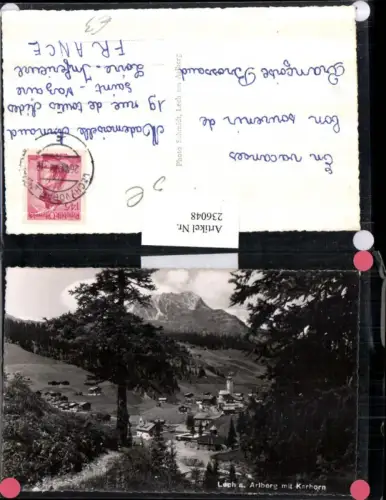 63
En vacances
bon souvenir de
Françoise Brossaud
Photo Schmidt, Lech am Arlberg
Mademoiselle
19 rue de toutes Aides
Saint - Nazaire
Loire - Inférieure
FRANCE
Artikel Nr.
236048
Lech a. Arlberg mit Karhorn